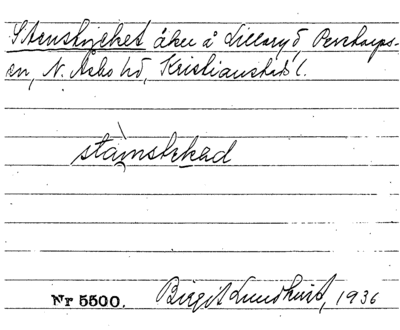 Stenskyehet åker å Lillaryd, Perstorps-
sn, N. Åsbo hd, Kristianstads l.
stàinstskad
Nr 5500. Birgit Lundkvist, 1936